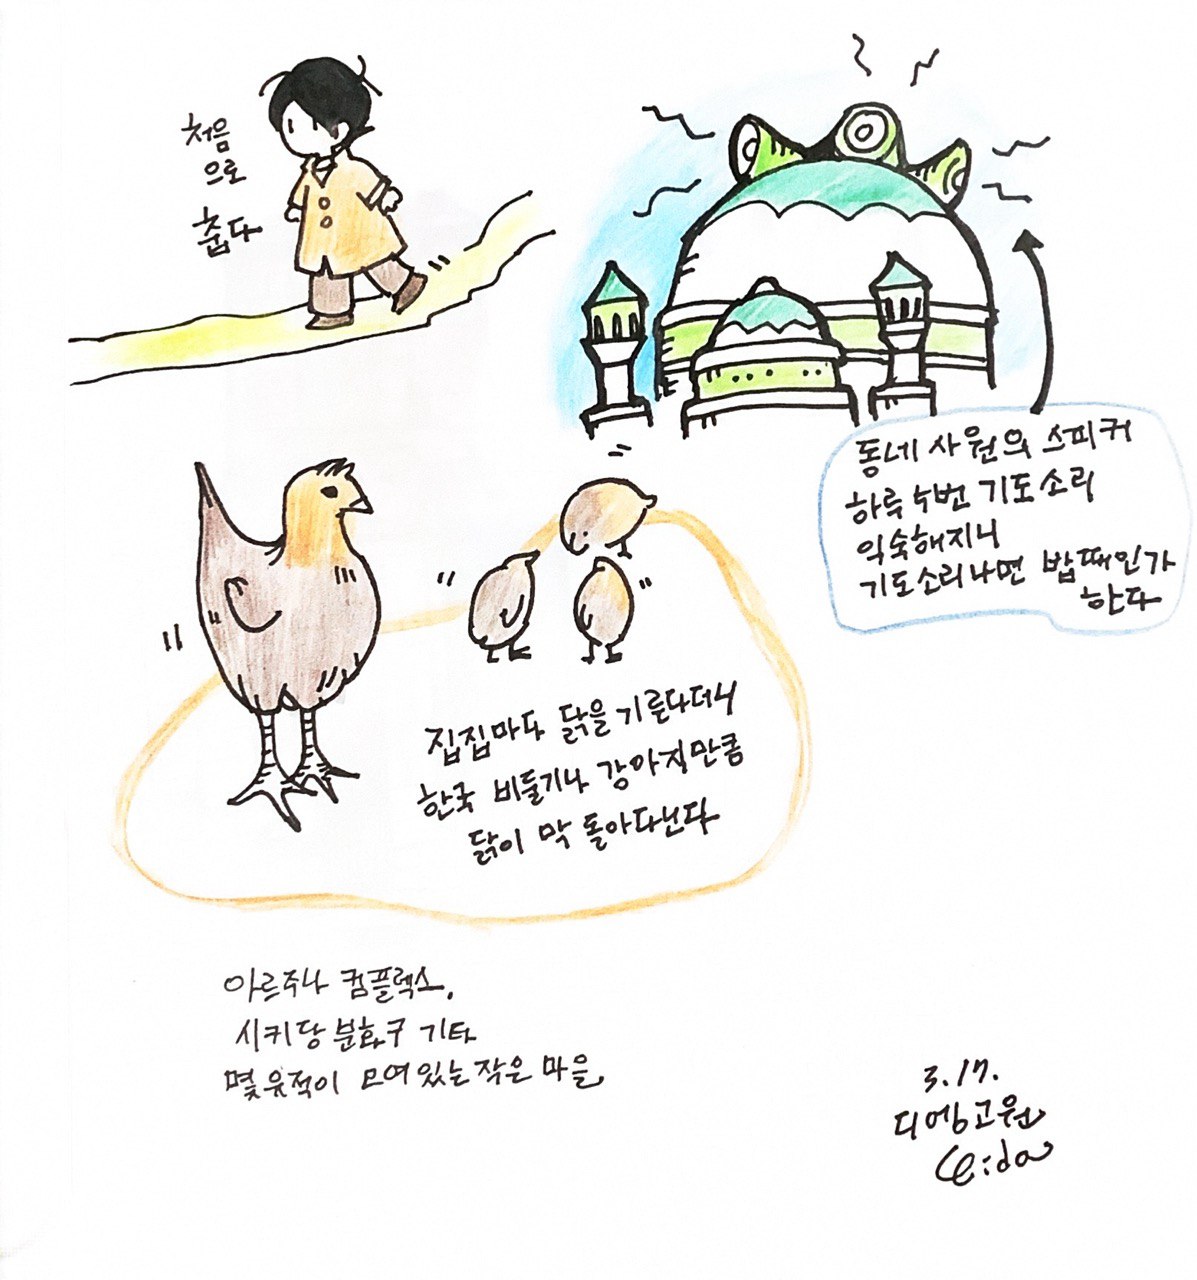 처음
으로
춥다
동네 사원의 스피커
하루 수번 기도소리
익숙해지니
기도소리나면 밥때인가
한다
집집마다 닭을 기른다더니
한국 비둘기나 강아지만큼
닭이 막 돌아다닌다
아르주나 컴플렉스.
시키당 분화구 기타
몇 유적이 모여 있는 작은 마을.
3.17.
디엥고원